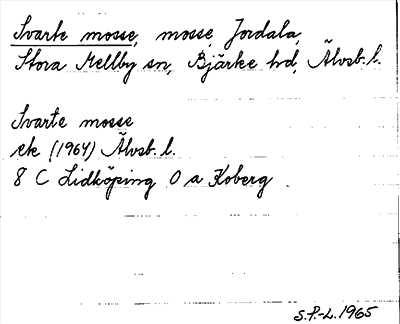 Svarte mosse, mosse, Jordala,
Stora Mellby sn, Bjärke hd, Älvsb. l.
Svarte mosse
ek (1964) Älvsb. l.
8 C Lidköping 0 a Koberg
S.P.-L. 1965